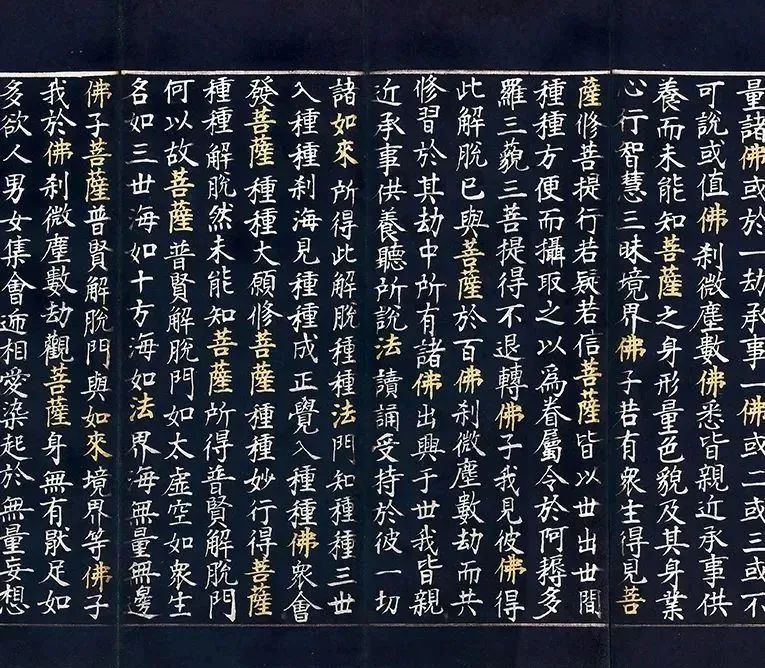 量諸佛或於一劫承事一佛或二或三或不
可說或值佛剎微塵數佛悉皆親近承事供
養而未能知菩薩之身形量色貌及其身業
心行智慧三昧境界佛子若有衆生得見菩
薩修菩提行若疑若信菩薩皆以世出世間
種種方便而攝取之以爲眷屬令於阿耨多
羅三藐三菩提得不退轉佛子我見彼佛得
此解脫已與菩薩於百佛剎微塵數劫而共
修習於其劫中所有諸佛出興于世我皆親
近承事供養聽所說法讀誦受持於彼一切
諸如來所得此解脫種種法門知種種三世
入種種剎海見種種成正覺入種種佛衆會
發菩薩種種大願修菩薩種種妙行得菩薩
種種解脫然未能知菩薩所得普賢解脫門
何以故菩薩普賢解脫門如太虛空如衆生
名如三世海如十方海如法界海無量無邊
佛子菩薩普賢解脫門與如來境界等佛子
我於佛剎微塵數劫觀菩薩身無有厭足如
多欲人男女集會遞相愛染起於無量妄想